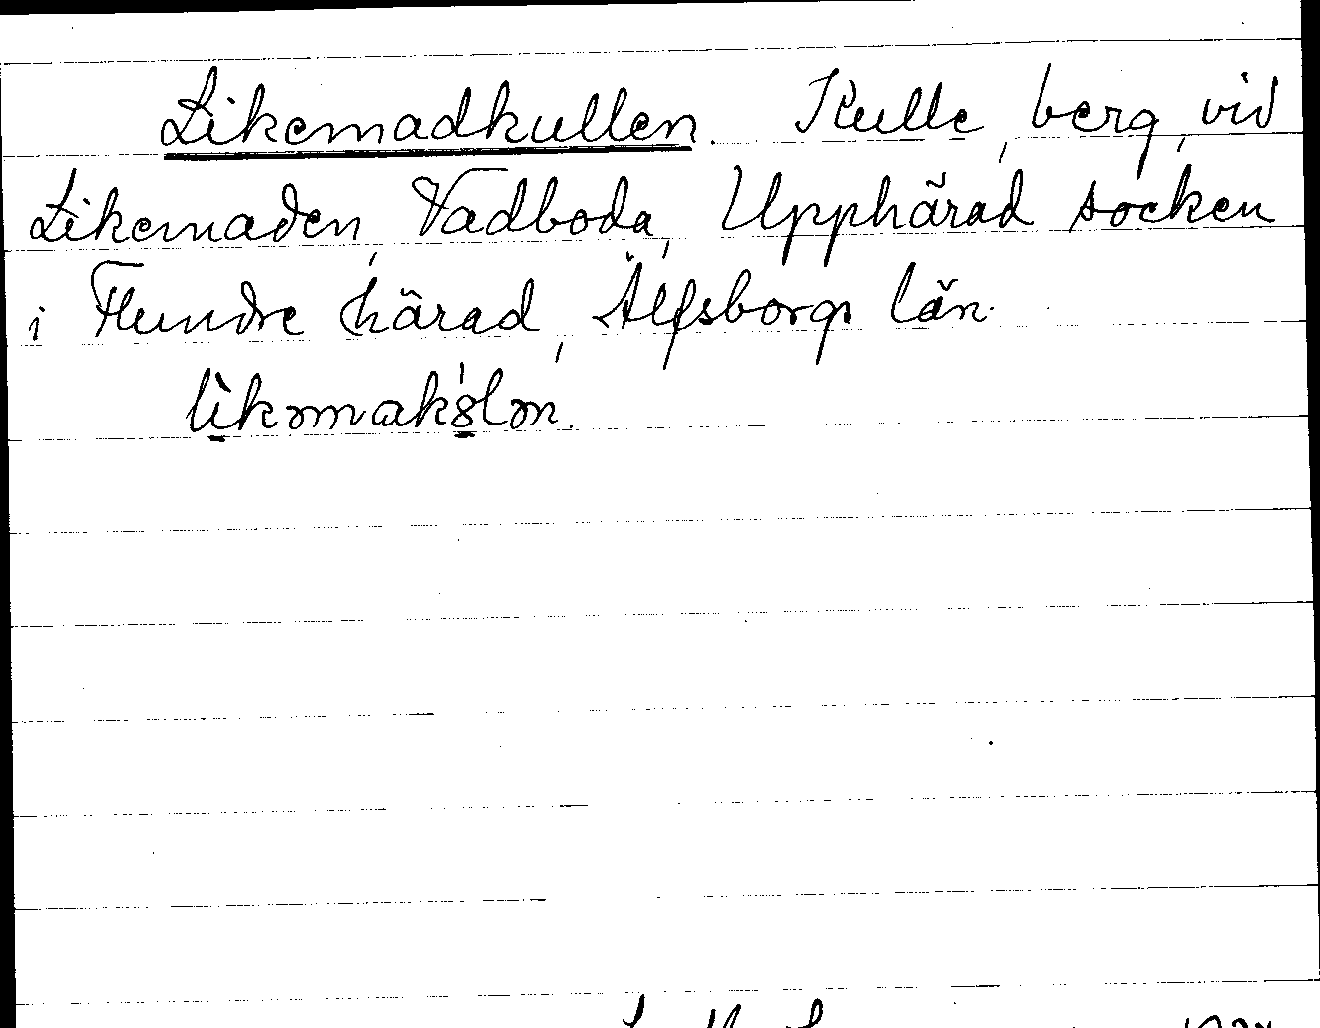 Likemadkullen. Kulle, berg, vid
Likemaden, Vadboda, Upphärad socken
i Flundre härad, Älfsborgs län.